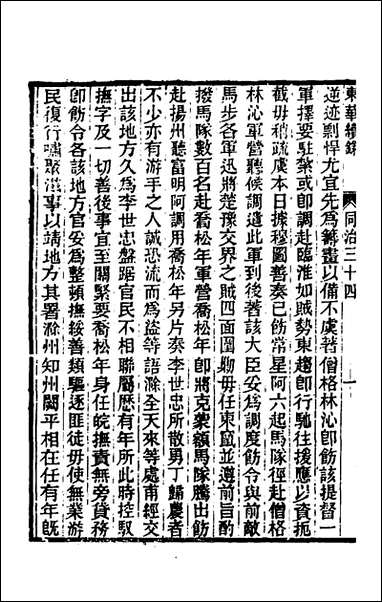 東華續錄 同治三十四 一
逆迹剽悍尤宜先爲籌畫以備不虞著僧格林沁卽飭該提督一
軍擇要駐紮或卽調赴臨淮如賊勢東趨卽行馳往援應以資扼
截毋稍疏虞本日據穆圖善奏已飭常星阿六起馬隊徑赴僧格
林沁軍營聽候調遣此軍到後著該大臣妥爲調度飭令與前敵
馬步各軍迅將楚豫交界之賊四面圍勦毋任東竄並遵前旨酌
撥馬隊數百名赴喬松年軍營喬松年卽將克蒙額馬隊騰出飭
赴揚州聽富明阿調用喬松年另片奏李世忠所散勇丁歸農者
不少亦有游手之人誠恐流而爲盜等語滁全天來等處甫經交
出該地方久爲李世忠盤踞官民不相聯屬歷有年所此時控馭
撫字及一切善後事宜至關緊要喬松年身任皖撫責無旁貸務
卽飭令各該地方官妥爲整頓撫綏善類驅逐匪徒毋使無業游
民復行嘯聚滋事以靖地方其署滁州知州關平相在任有年旣